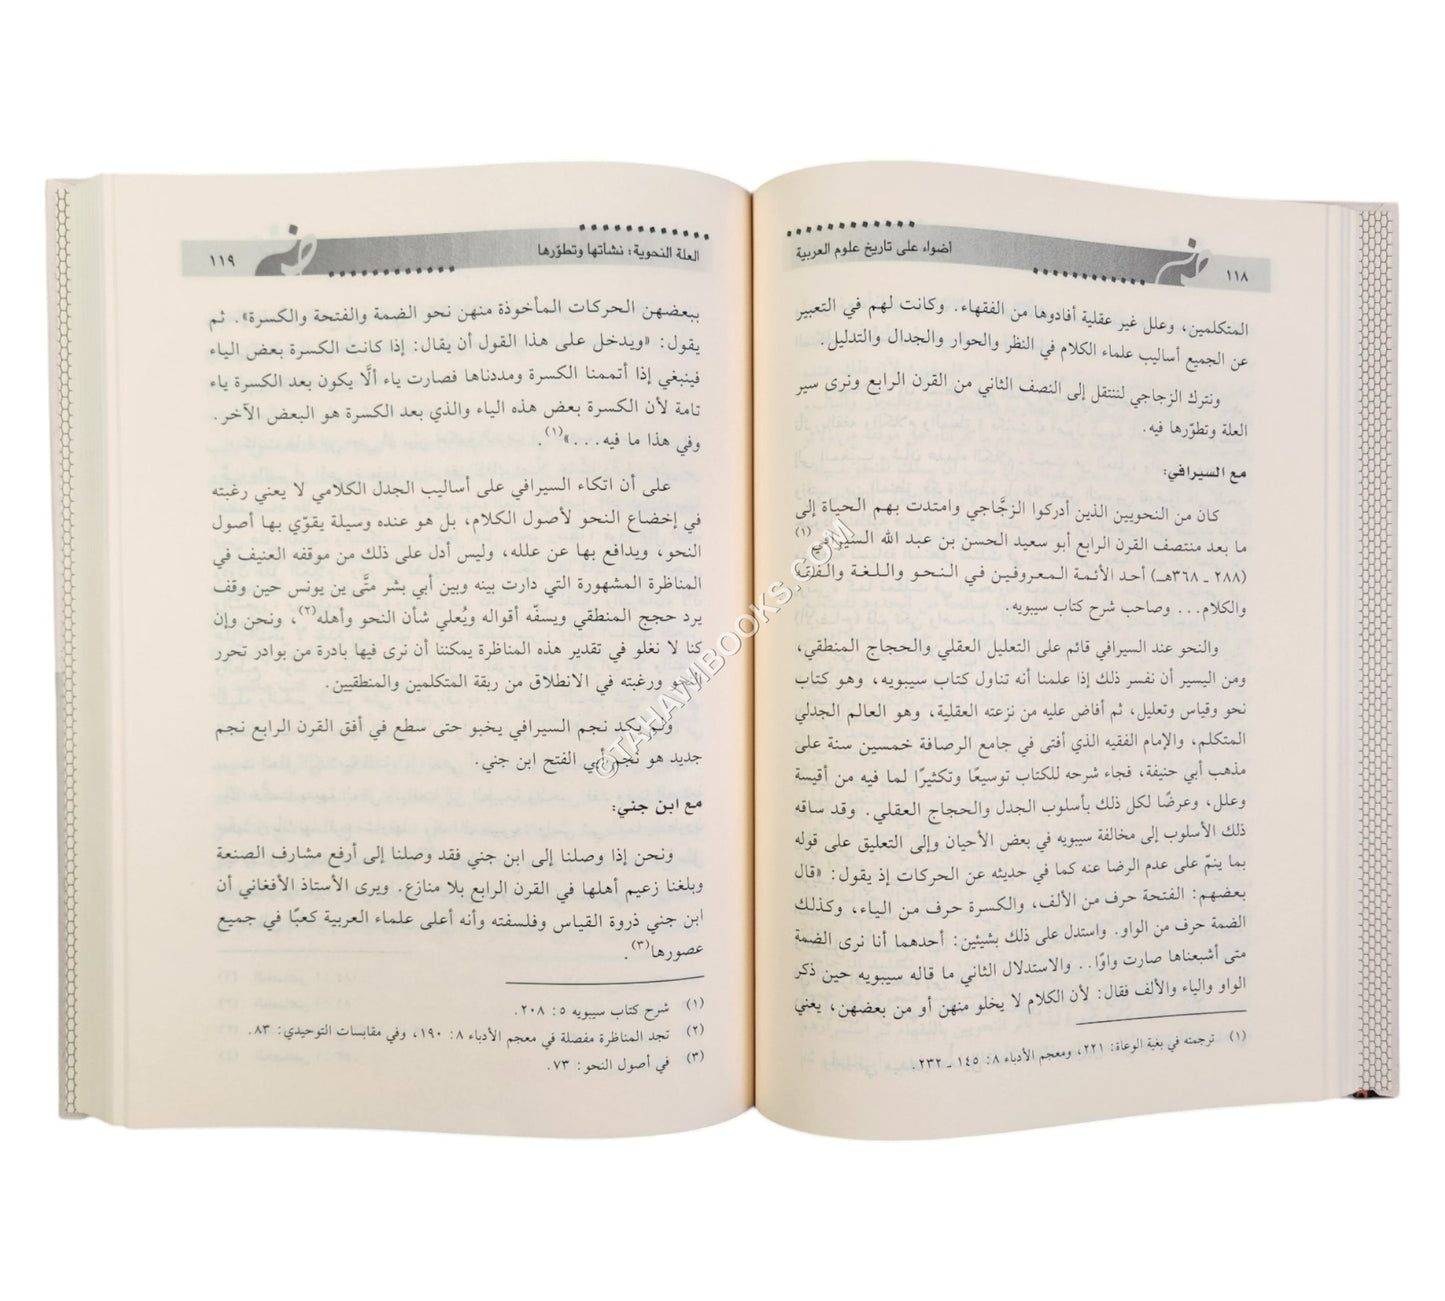 أضواء على تاريخ علوم العربية
١١٨
المتكلمين، وعلل غير عقلية أفادوها من الفقهاء. وكانت لهم في التعبير
عن الجميع أساليب علماء الكلام في النظر والحوار والجدال والتدليل.
ونترك الزجاجي لننتقل إلى النصف الثاني من القرن الرابع ونرى سير
العلة وتطوّرها فيه.
مع السيرافي:
كان من النحويين الذين أدركوا الزجَّاجي وامتدت بهم الحياة إلى
ما بعد منتصف القرن الرابع أبو سعيد الحسن بن عبد الله السيرافي(١)
(٢٨٨ ـ ٣٦٨هـ) أحد الأئمة المعروفين في النحو واللغة والفقه
والكلام... وصاحب شرح كتاب سيبويه.
والنحو عند السيرافي قائم على التعليل العقلي والحجاج المنطقي،
ومن اليسير أن نفسر ذلك إذا علمنا أنه تناول كتاب سيبويه، وهو كتاب
نحو وقياس وتعليل، ثم أفاض عليه من نزعته العقلية، وهو العالم الجدلي
المتكلم، والإمام الفقيه الذي أفتى في جامع الرصافة خمسين سنة على
مذهب أبي حنيفة، فجاء شرحه للكتاب توسيعًا وتكثيرًا لما فيه من أقيسة
وعلل، وعرضًا لكل ذلك بأسلوب الجدل والحجاج العقلي. وقد ساقه
ذلك الأسلوب إلى مخالفة سيبويه في بعض الأحيان وإلى التعليق على قوله
بما ينمّ على عدم الرضا عنه كما في حديثه عن الحركات إذ يقول: «قال
بعضهم: الفتحة حرف من الألف، والكسرة حرف من الياء، وكذلك
الضمة حرف من الواو. واستدل على ذلك بشيئين: أحدهما أنا نرى الضمة
متى أشبعناها صارت واوًا.. والاستدلال الثاني ما قاله سيبويه حين ذكر
الواو والياء والألف فقال: لأن الكلام لا يخلو منهن أو من بعضهن، يعني
(١) ترجمته في بغية الوعاة: ٢٢١، ومعجم الأدباء ٨: ١٤٥ ـ ٢٣٢.
العلة النحوية: نشأتها وتطوّرها
١١٩
ببعضهن الحركات المأخوذة منهن نحو الضمة والفتحة والكسرة». ثم
يقول: «ويدخل على هذا القول أن يقال: إذا كانت الكسرة بعض الياء
فينبغي إذا أتممنا الكسرة ومددناها فصارت ياء ألَّا يكون بعد الكسرة ياء
تامة لأن الكسرة بعض هذه الياء والذي بعد الكسرة هو البعض الآخر.
وفي هذا ما فيه...»(١).
على أن اتكاء السيرافي على أساليب الجدل الكلامي لا يعني رغبته
في إخضاع النحو لأصول الكلام، بل هو عنده وسيلة يقوّي بها أصول
النحو، ويدافع بها عن علله، وليس أدل على ذلك من موقفه العنيف في
المناظرة المشهورة التي دارت بينه وبين أبي بشر متَّى بن يونس حين وقف
يرد حجج المنطقي ويسفّه أقواله ويُعلي شأن النحو وأهله(٢)، ونحن وإن
كنا لا نغلو في تقدير هذه المناظرة يمكننا أن نرى فيها بادرة من بوادر تحرر
النحو ورغبته في الانطلاق من ربقة المتكلمين والمنطقيين.
ولم يكد نجم السيرافي يخبو حتى سطع في أفق القرن الرابع نجم
جديد هو نجم أبي الفتح ابن جني.
مع ابن جني:
ونحن إذا وصلنا إلى ابن جني فقد وصلنا إلى أرفع مشارف الصنعة
وبلغنا زعيم أهلها في القرن الرابع بلا منازع. ويرى الأستاذ الأفغاني أن
ابن جني ذروة القياس وفلسفته وأنه أعلى علماء العربية كعبًا في جميع
عصورها(٣).
(١) شرح كتاب سيبويه ٥: ٢٠٨.
(٢) تجد المناظرة مفصلة في معجم الأدباء ٨: ١٩٠، وفي مقابسات التوحيدي: ٨٣.
(٣) في أصول النحو: ٧٣.
©TAHAWIBOOKS.COM